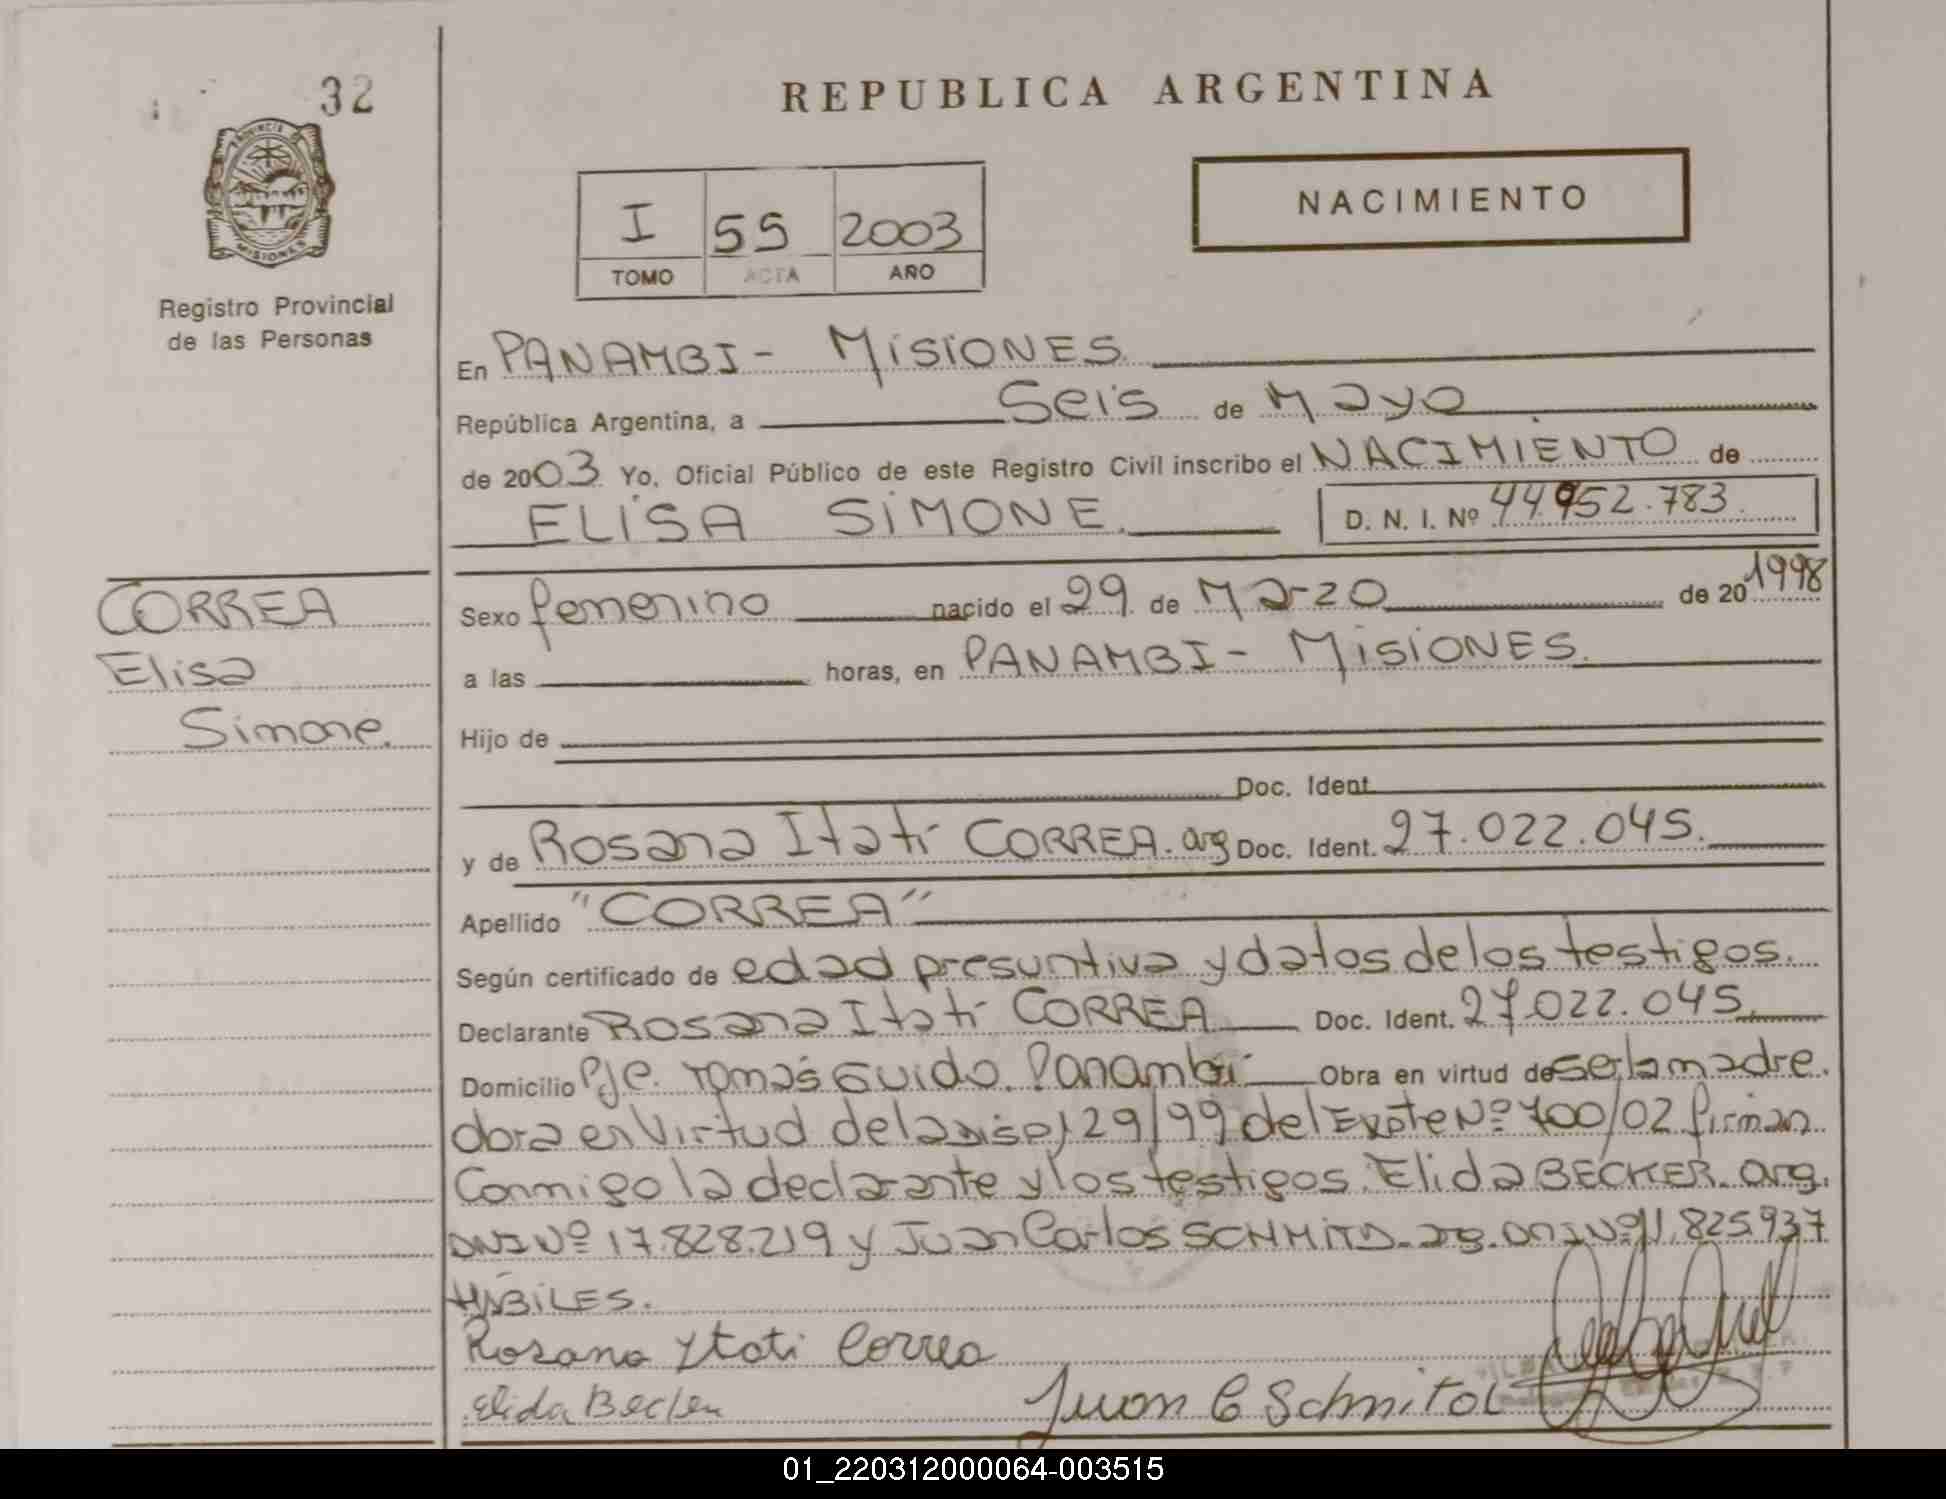 32
PROVINCIA DE
MISIONES
Registro Provincial
de las Personas
REPUBLICA ARGENTINA
I 55 2003
TOMO ACTA AÑO
NACIMIENTO
En PANAMBI - MISIONES
República Argentina, a Seis de Mayo
de 2003 Yo, Oficial Público de este Registro Civil inscribo el NACIMIENTO de
ELISA SIMONE. D. N. I. Nº 44952.783.
CORREA
Elisa
Simone.
Sexo femenino nacido el 29 de Marzo de 20 1998
a las horas, en PANAMBI - MISIONES.
Hijo de
Doc. Ident.
y de Rosana Itatí CORREA. arg Doc. Ident. 27.022.045.
Apellido "CORREA"
Según certificado de edad presuntiva y datos de los testigos.
Declarante Rosana Itatí CORREA Doc. Ident. 27.022.045.
Domicilio Pje. Tomás Guido. Panambí Obra en virtud de ser la madre.
obra en virtud de la Disp 129/99 del Expte Nº 700/02 firman
Conmigo la declarante y los testigos. Elida BECKER. arg.
DNI Nº 17.828.219 y Juan Carlos SCHMITD. arg. DNI Nº 11.825.937
HÁBILES.
Rosana Ytati Correa
Elida Becker
Juan C Schmitd
01_220312000064-003515